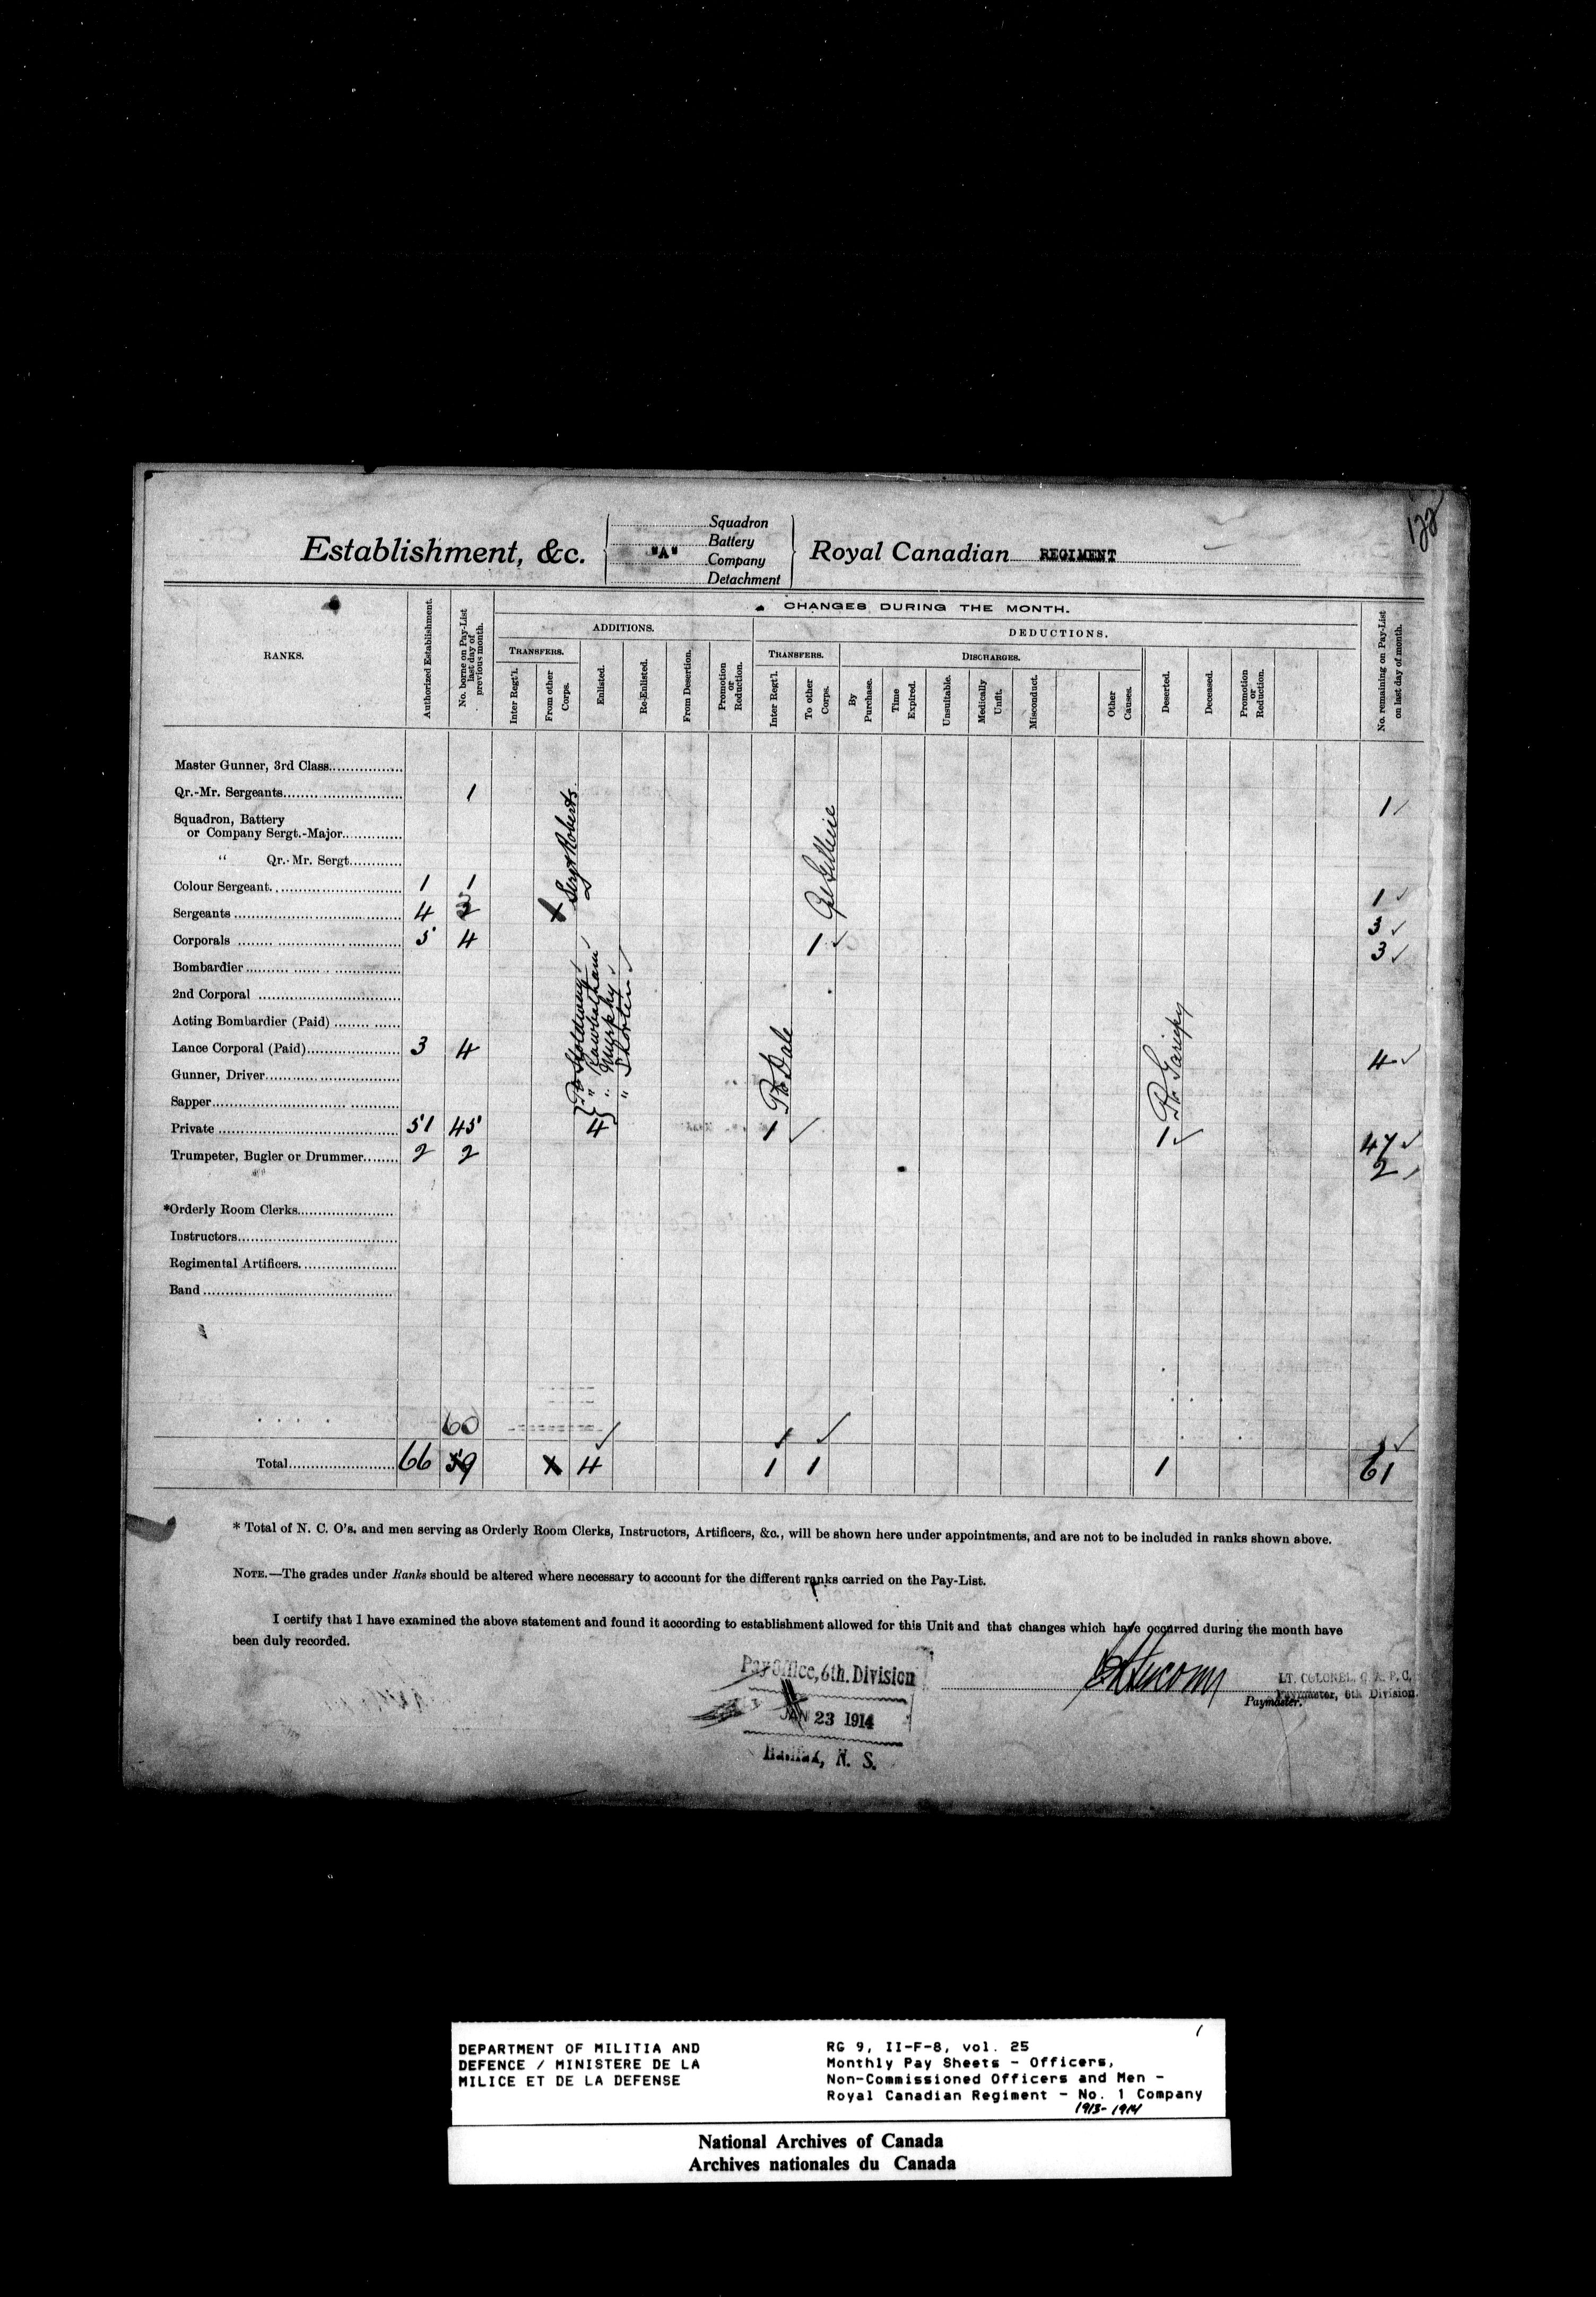 122
Squadron
Battery
Establishment, &c. "A" Company Royal Canadian REGIMENT
Detachment
CHANGES DURING THE MONTH.
ADDITIONS. DEDUCTIONS.
RANKS. Authorized Establishment. No. borne on Pay-List last day of previous month. TRANSFERS. TRANSFERS. DISCHARGES. No. remaining on Pay-List on last day of month.
Inter Regt'l. From other Corps. Enlisted. Re-Enlisted. From Desertion. Promotion or Reduction. Inter Regt'l. To other Corps. By Purchase. Time Expired. Unsuitable. Medically Unfit. Misconduct. Other Causes. Deserted. Deceased. Promotion or Reduction.
Master Gunner, 3rd Class
Qr.-Mr. Sergeants 1 1
Squadron, Battery
or Company Sergt.-Major
" Qr.-Mr. Sergt
Sergt Roberts
Colour Sergeant 1 1 1
Sergeants 4 3 3
Corporals 5 4 1 3
Bombardier
2nd Corporal
Acting Bombardier (Paid)
Lance Corporal (Paid) 3 4 4
Gunner, Driver
Sapper
" Murphy
" Shorten
Pte Dale
Pte Gariepy
Private 51 45 4 1 1 47
Trumpeter, Bugler or Drummer 2 2 2
*Orderly Room Clerks
Instructors
Regimental Artificers
Band
60
Total 66 59 4 1 1 1 61
* Total of N. C. O's. and men serving as Orderly Room Clerks, Instructors, Artificers, &c., will be shown here under appointments, and are not to be included in ranks shown above.
NOTE.—The grades under Ranks should be altered where necessary to account for the different ranks carried on the Pay-List.
I certify that I have examined the above statement and found it according to establishment allowed for this Unit and that changes which have occurred during the month have
been duly recorded.
Pay Office, 6th. Division
JAN 23 1914
Halifax, N. S.
LT. COLONEL, C. A. P. C.
Paymaster, 6th Division.
Paymaster.
DEPARTMENT OF MILITIA AND
DEFENCE / MINISTERE DE LA
MILICE ET DE LA DEFENSE
1
RG 9, II-F-8, vol. 25
Monthly Pay Sheets - Officers,
Non-Commissioned Officers and Men -
Royal Canadian Regiment - No. 1 Company
1913-1914
National Archives of Canada
Archives nationales du Canada